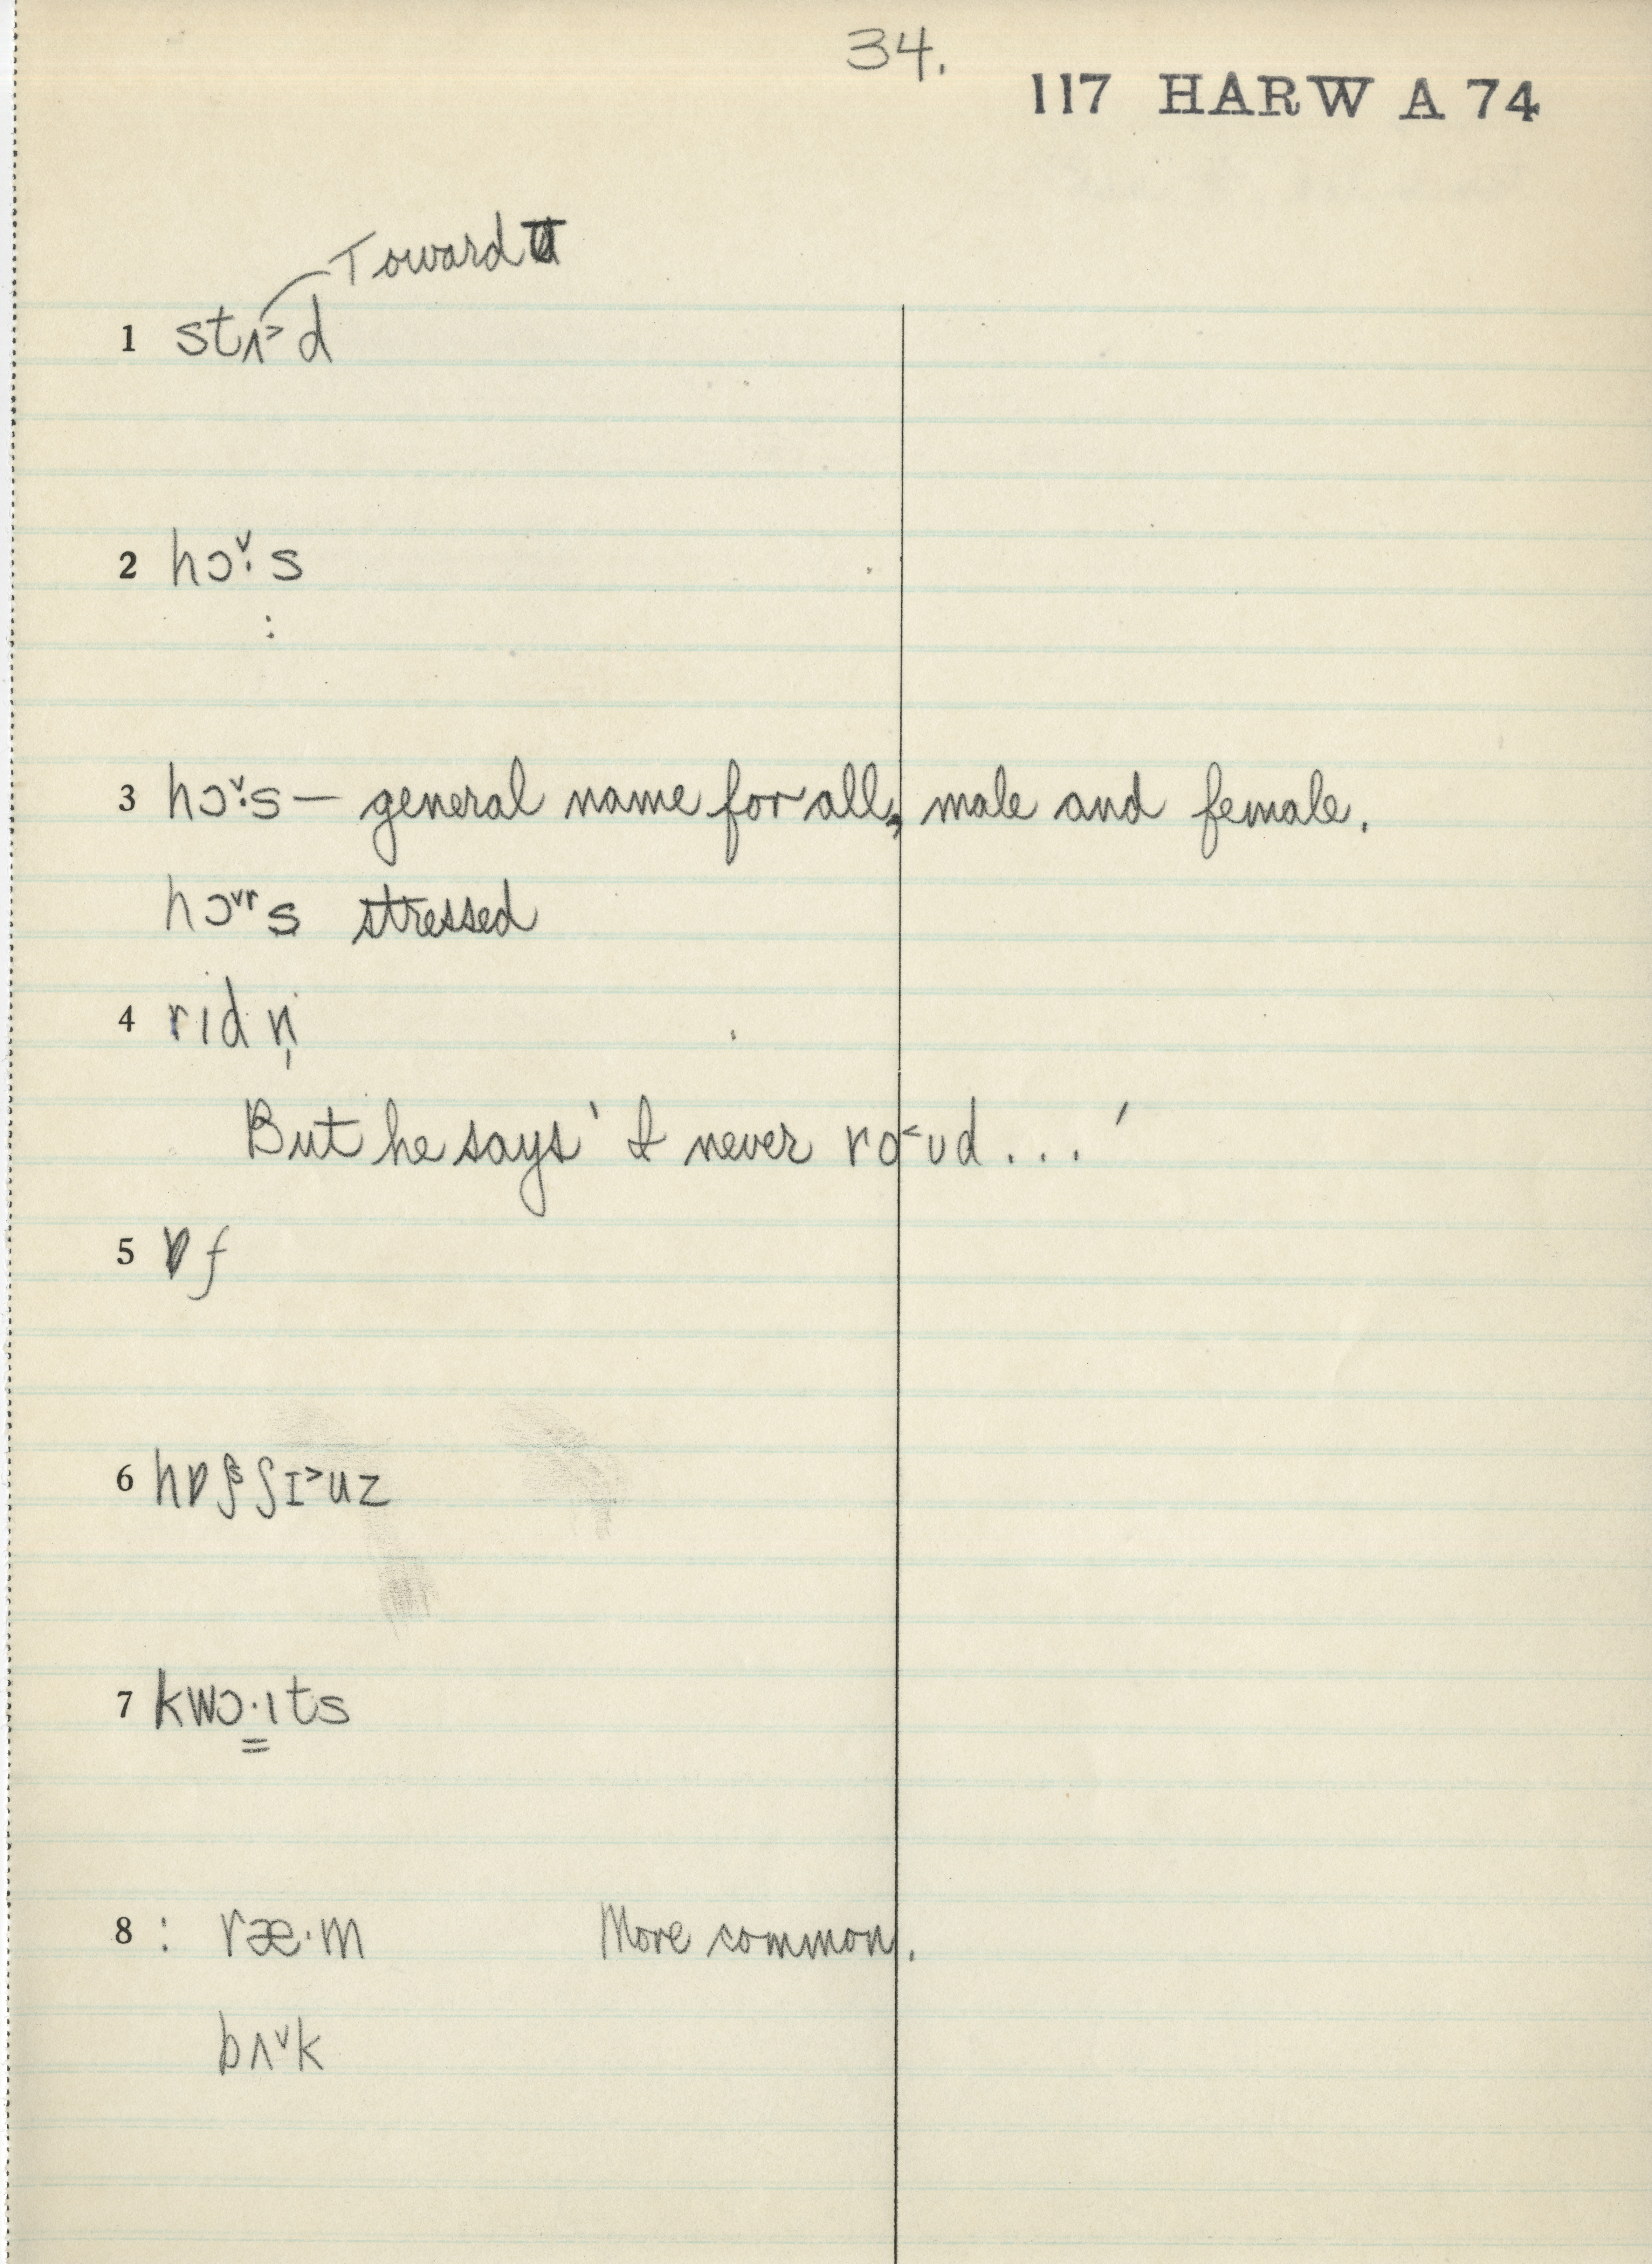 34.
117 HARW A 74
Toward ᴜ
1 stʌ˃d
2 hɔˇ·s
:
3 hɔˇ·s – general name for all, male and female.
hɔˇʳs stressed
4 rɪdn̩
But he says ' I never ro˂ʊd . . . '
5 ɒf
6 hɒʃˢʃɪ˃uz
7 kwɔ̳·ɪts
8 : ræ·m More common.
bʌˇk